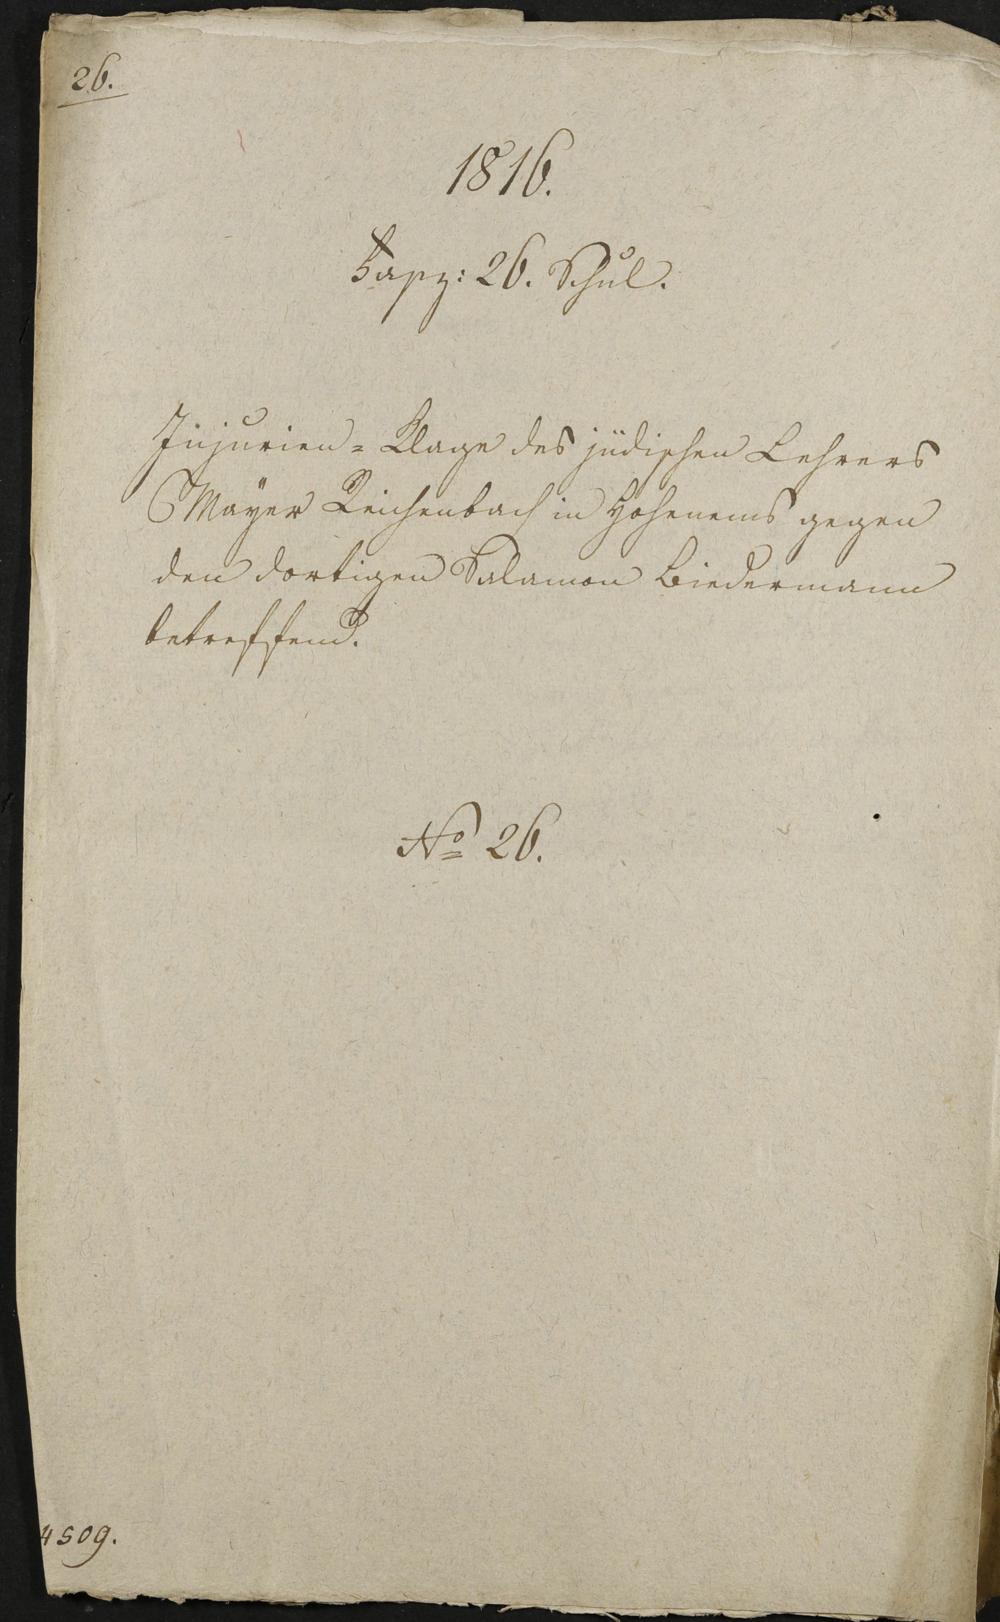 26.
1816.
Fasz: 26. Schul.
Injurien = Klage des jüdischen Lehrers
Mayer Reichenbach in Hohenems gegen
den dortigen Salamon Biedermann
betreffend.
No 26.
4509.